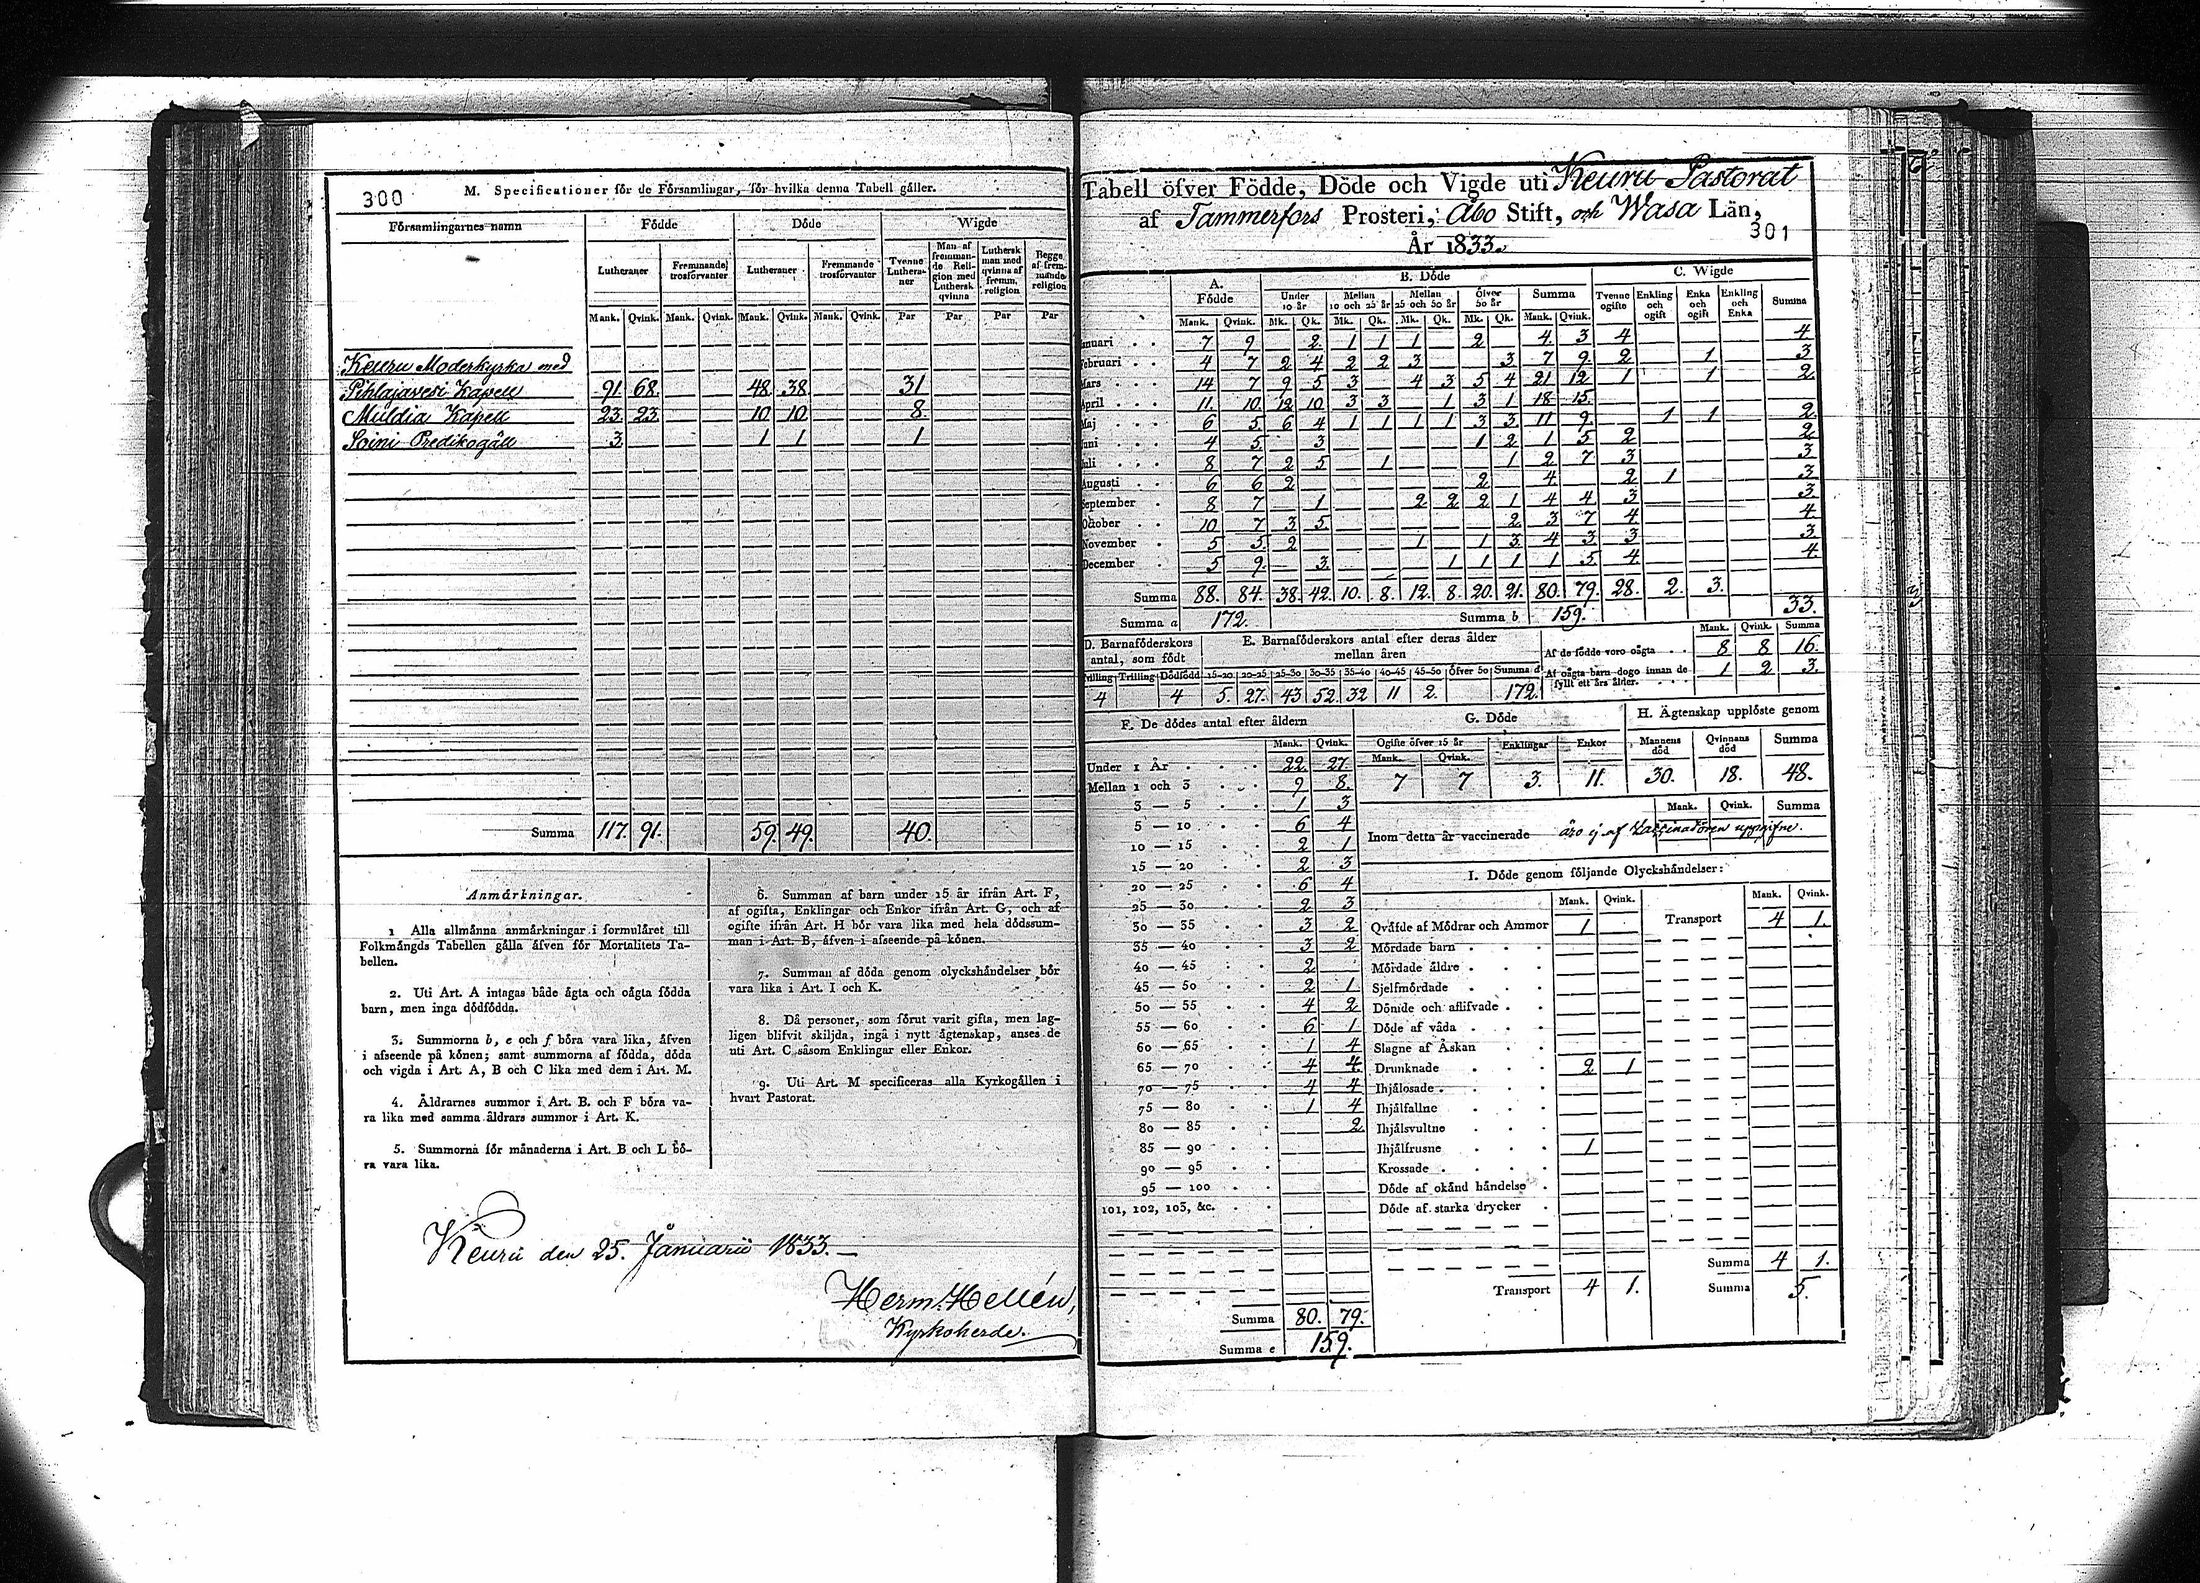 300
M. Specificationer för de Församlingar, för hvilka denna Tabell gäller.
Församlingarnes namn | Födde | Döde | Wigde
Lutheraner | Fremmande trosförvanter | Lutheraner | Fremmande trosförvanter | Tvenne Lutheraner | Man af fremmande Religion med Luthersk qvinna | Luthersk man med qvinna af fremm. religion | Begge af fremmande religion
Mank. Qvink. Mank. Qvink. Mank. Qvink. Mank. Qvink. Par Par Par Par
Keuru Moderkyrka med
Pihlajavesi Kapell 91. 68. 48. 38. 31.
Muldia Kapell 23. 23. 10. 10. 8.
Soini Predikogåll 3. 1 1 1
Summa 117. 91. 59. 49. 40.
Anmärkningar.
1 Alla allmänna anmärkningar i formuläret till
Folkmängds Tabellen gälla äfven för Mortalitets Ta-
bellen.
2. Uti Art. A intagas både ägta och oägta födda
barn, men inga dödfödda.
3. Summorna b, e och f böra vara lika, äfven
i afseende på könen; samt summorna af födda, döda
och vigda i Art. A, B och C lika med dem i Art. M.
4. Åldrarnes summor i Art. B. och F böra va-
ra lika med samma åldrars summor i Art. K.
5. Summorna för månaderna i Art. B och L bö-
ra vara lika.
6. Summan af barn under 15 år ifrån Art. F,
af ogifta, Enklingar och Enkor ifrån Art. G, och af
ogifte ifrån Art. H bör vara lika med hela dödssum-
man i Art. B, äfven i afseende på könen.
7. Summan af döda genom olyckshändelser bör
vara lika i Art. I och K.
8. Då personer, som förut varit gifta, men lag-
ligen blifvit skiljda, ingå i nytt ägtenskap, anses de
uti Art. C såsom Enklingar eller Enkor.
9. Uti Art. M specificeras alla Kyrkogällen i
hvart Pastorat.
Keuru den 25. Januarii 1833.
Herm. Hellén,
Kyrkoherde.
Tabell öfver Födde, Döde och Vigde uti Keuru Pastorat
af Tammerfors Prosteri, Åbo Stift, och Wasa Län,
År 1833.
301
A. Födde | B. Döde | C. Wigde
Under 10 år | Mellan 10 och 25 år | Mellan 25 och 50 år | Öfver 50 år | Summa | Tvenne ogifte | Enkling och ogift | Enka och ogift | Enkling och Enka | Summa
Mank. Qvink. Mk. Qk. Mk. Qk. Mk. Qk. Mk. Qk. Mank. Qvink.
Januari 7 9 2 1 1 1 2 4 3 4 4
Februari 4 7 2 4 2 2 3 3 7 9 2 1 3
Mars 14 7 9 5 3 4 3 5 4 21 12 1 1 2
April 11 10 12 10 3 3 1 3 1 18 15
Maj 6 5 6 4 1 1 1 1 3 3 11 9 1 1 2
Juni 4 5 3 1 2 1 5 2 2
Juli 8 7 2 5 1 1 2 7 3 3
Augusti 6 6 2 2 4 2 1 3
September 8 7 1 2 2 2 1 4 4 3 3
October 10 7 3 5 2 3 7 4 4
November 5 5 2 1 1 3 4 3 3 3
December 5 9 3 1 1 1 1 5 4 4
Summa 88. 84. 38. 42. 10. 8. 12. 8. 20. 21. 80. 79. 28. 2. 3.
Summa a 172. Summa b 159. 33.
D. Barnaföderskors antal, som födt
E. Barnaföderskors antal efter deras ålder mellan åren
Tvilling Trilling Dödfödd 15-20 20-25 25-30 30-35 35-40 40-45 45-50 Öfver 50 Summa d
4 4 5. 27. 43 52 32 11 2. 172.
Mank. Qvink. Summa
Af de födde voro oägta 8 8 16.
Af oägta barn dogo innan de fyllt ett års ålder. 1 2 3.
F. De dödes antal efter åldern
Mank. Qvink.
Under 1 År 22 27
Mellan 1 och 3 9 8
3 — 5 1 3
5 — 10 6 4
10 — 15 2 1
15 — 20 2 3
20 — 25 6 4
25 — 30 2 3
30 — 35 3 2
35 — 40 3 2
40 — 45 2
45 — 50 2 1
50 — 55 4 2
55 — 60 6 1
60 — 65 1 4
65 — 70 4 4
70 — 75 4 4
75 — 80 1 4
80 — 85 2
85 — 90
90 — 95
95 — 100
101, 102, 103, &c.
Summa 80. 79.
Summa e 159.
G. Döde
Ogifte öfver 15 år | Enklingar | Enkor
Mank. Qvink.
7 7 3. 11.
H. Ägtenskap upplöste genom
Mannens död | Qvinnans död | Summa
30. 18. 48.
Mank. Qvink. Summa
Inom detta år vaccinerade äro ej af Vaccinatören uppgifne.
I. Döde genom följande Olyckshändelser:
Mank. Qvink. Mank. Qvink.
Qväfde af Mödrar och Ammor 1
Mördade barn
Mördade äldre
Sjelfmördade
Dömde och aflifvade
Döde af våda
Slagne af Åskan
Drunknade 2 1
Ihjälosade
Ihjälfallne
Ihjälsvultne
Ihjälfrusne 1
Krossade
Döde af okänd händelse
Döde af starka drycker
Transport 4 1.
Transport 4 1.
Summa 4 1.
Summa 5.